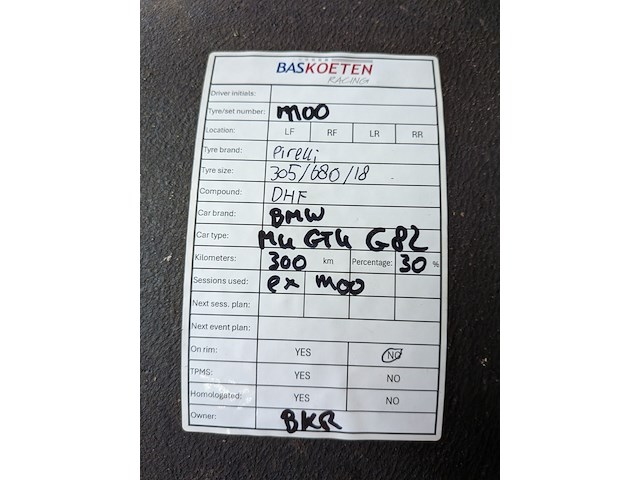 BASKOETEN
RACING
Driver initials:
Tyre/set number: M00
Location: LF RF LR RR
Tyre brand: Pirelli
Tyre size: 305/680/18
Compound: DHF
Car brand: BMW
Car type: M4 GT4 G82
Kilometers: 300 km Percentage: 30 %
Sessions used: ex M00
Next sess. plan:
Next event plan:
On rim: YES NO
TPMS: YES NO
Homologated: YES NO
Owner: BKR